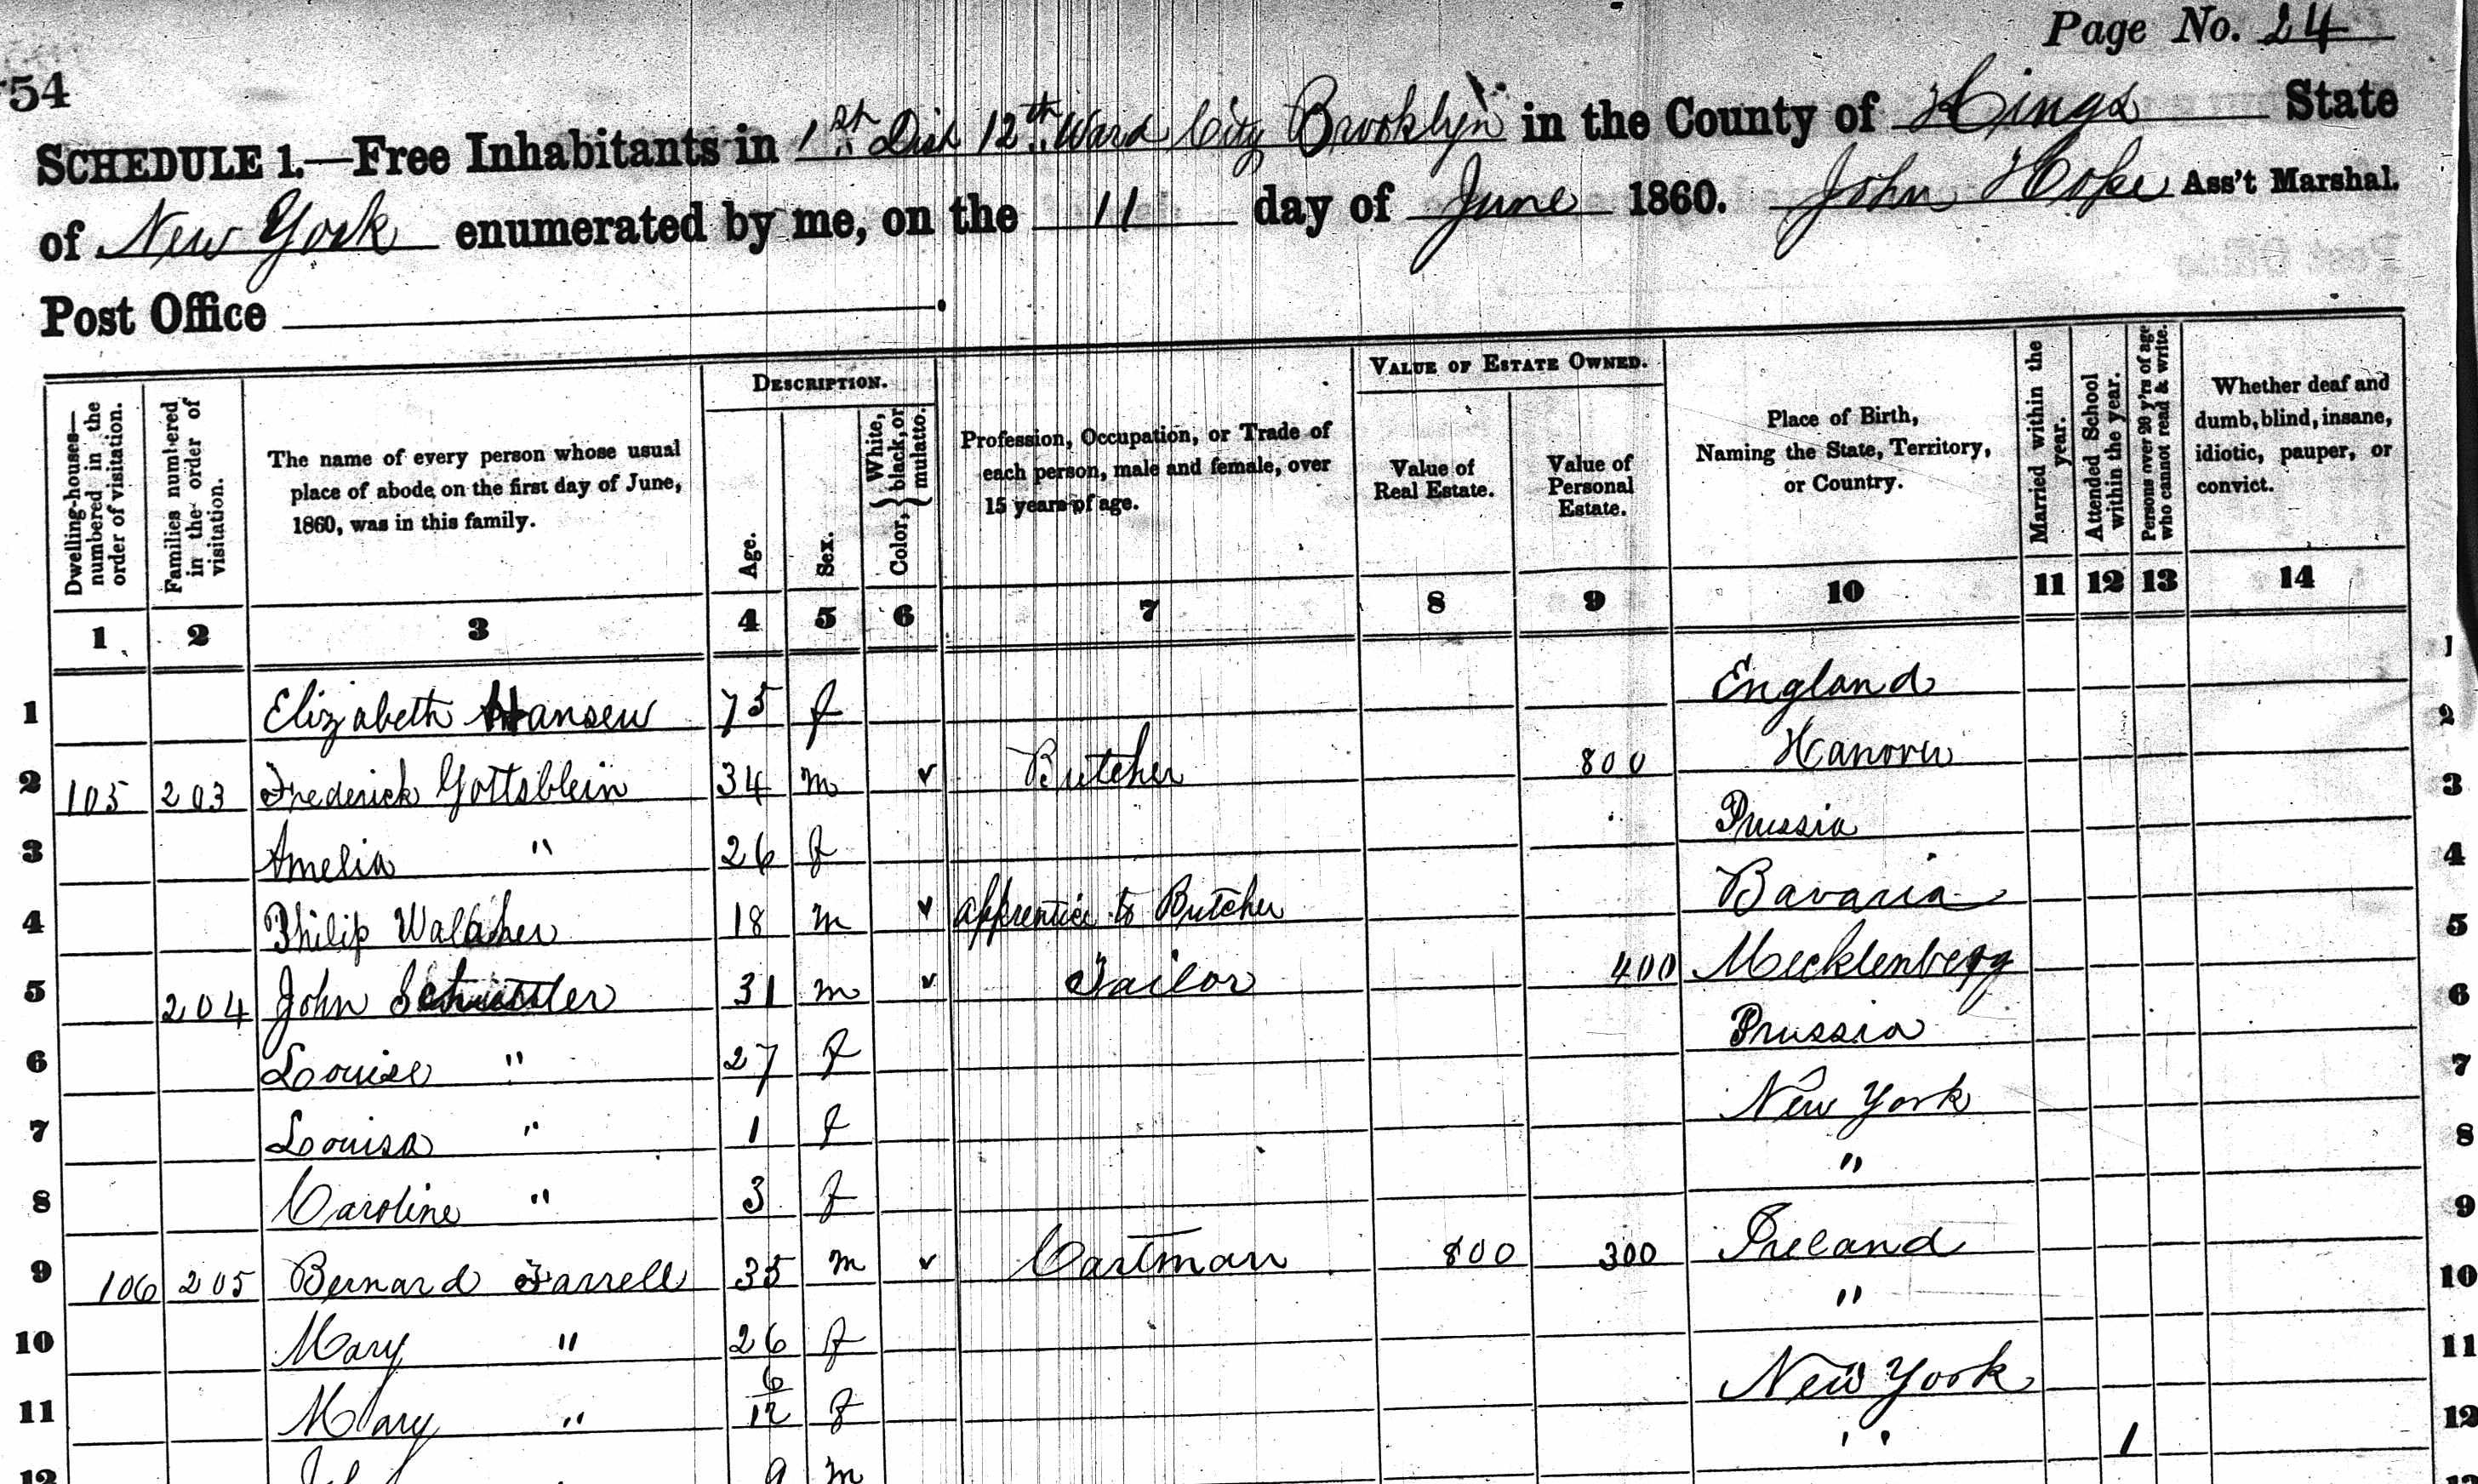 Page No. 24
54
SCHEDULE 1.—Free Inhabitants in 1st Dist 12th Ward City Brooklyn in the County of Kings State
of New York enumerated by me, on the 11 day of June 1860. John Hope Ass't Marshal.
Post Office
Dwelling-houses—numbered in the order of visitation.
Families numbered in the order of visitation.
The name of every person whose usual place of abode on the first day of June, 1860, was in this family.
DESCRIPTION.
Age.
Sex.
Color, { White, black, or mulatto.
Profession, Occupation, or Trade of each person, male and female, over 15 years of age.
VALUE OF ESTATE OWNED.
Value of Real Estate.
Value of Personal Estate.
Place of Birth, Naming the State, Territory, or Country.
Married within the year.
Attended School within the year.
Persons over 20 y'rs of age who cannot read & write.
Whether deaf and dumb, blind, insane, idiotic, pauper, or convict.
1 2 3 4 5 6 7 8 9 10 11 12 13 14
1 Elizabeth Hansen 75 f England 1
2 105 203 Frederick Gottsblein 34 m Butcher 800 Hanover 2
3 Amelia " 26 f Prussia 3
4 Philip 18 m apprentice to Butcher Bavaria 4
5 204 John 31 m Tailor 400 Mecklenberg 5
6 Louise " 27 f Prussia 6
7 Louisa " 1 f New York 7
8 Caroline " 3 f " 8
9 106 205 Bernard Farrell 35 m Cartman 800 300 Ireland 9
10 Mary " 26 f " 10
11 Mary " 6/12 f New York 11
12 9 m " 1 12